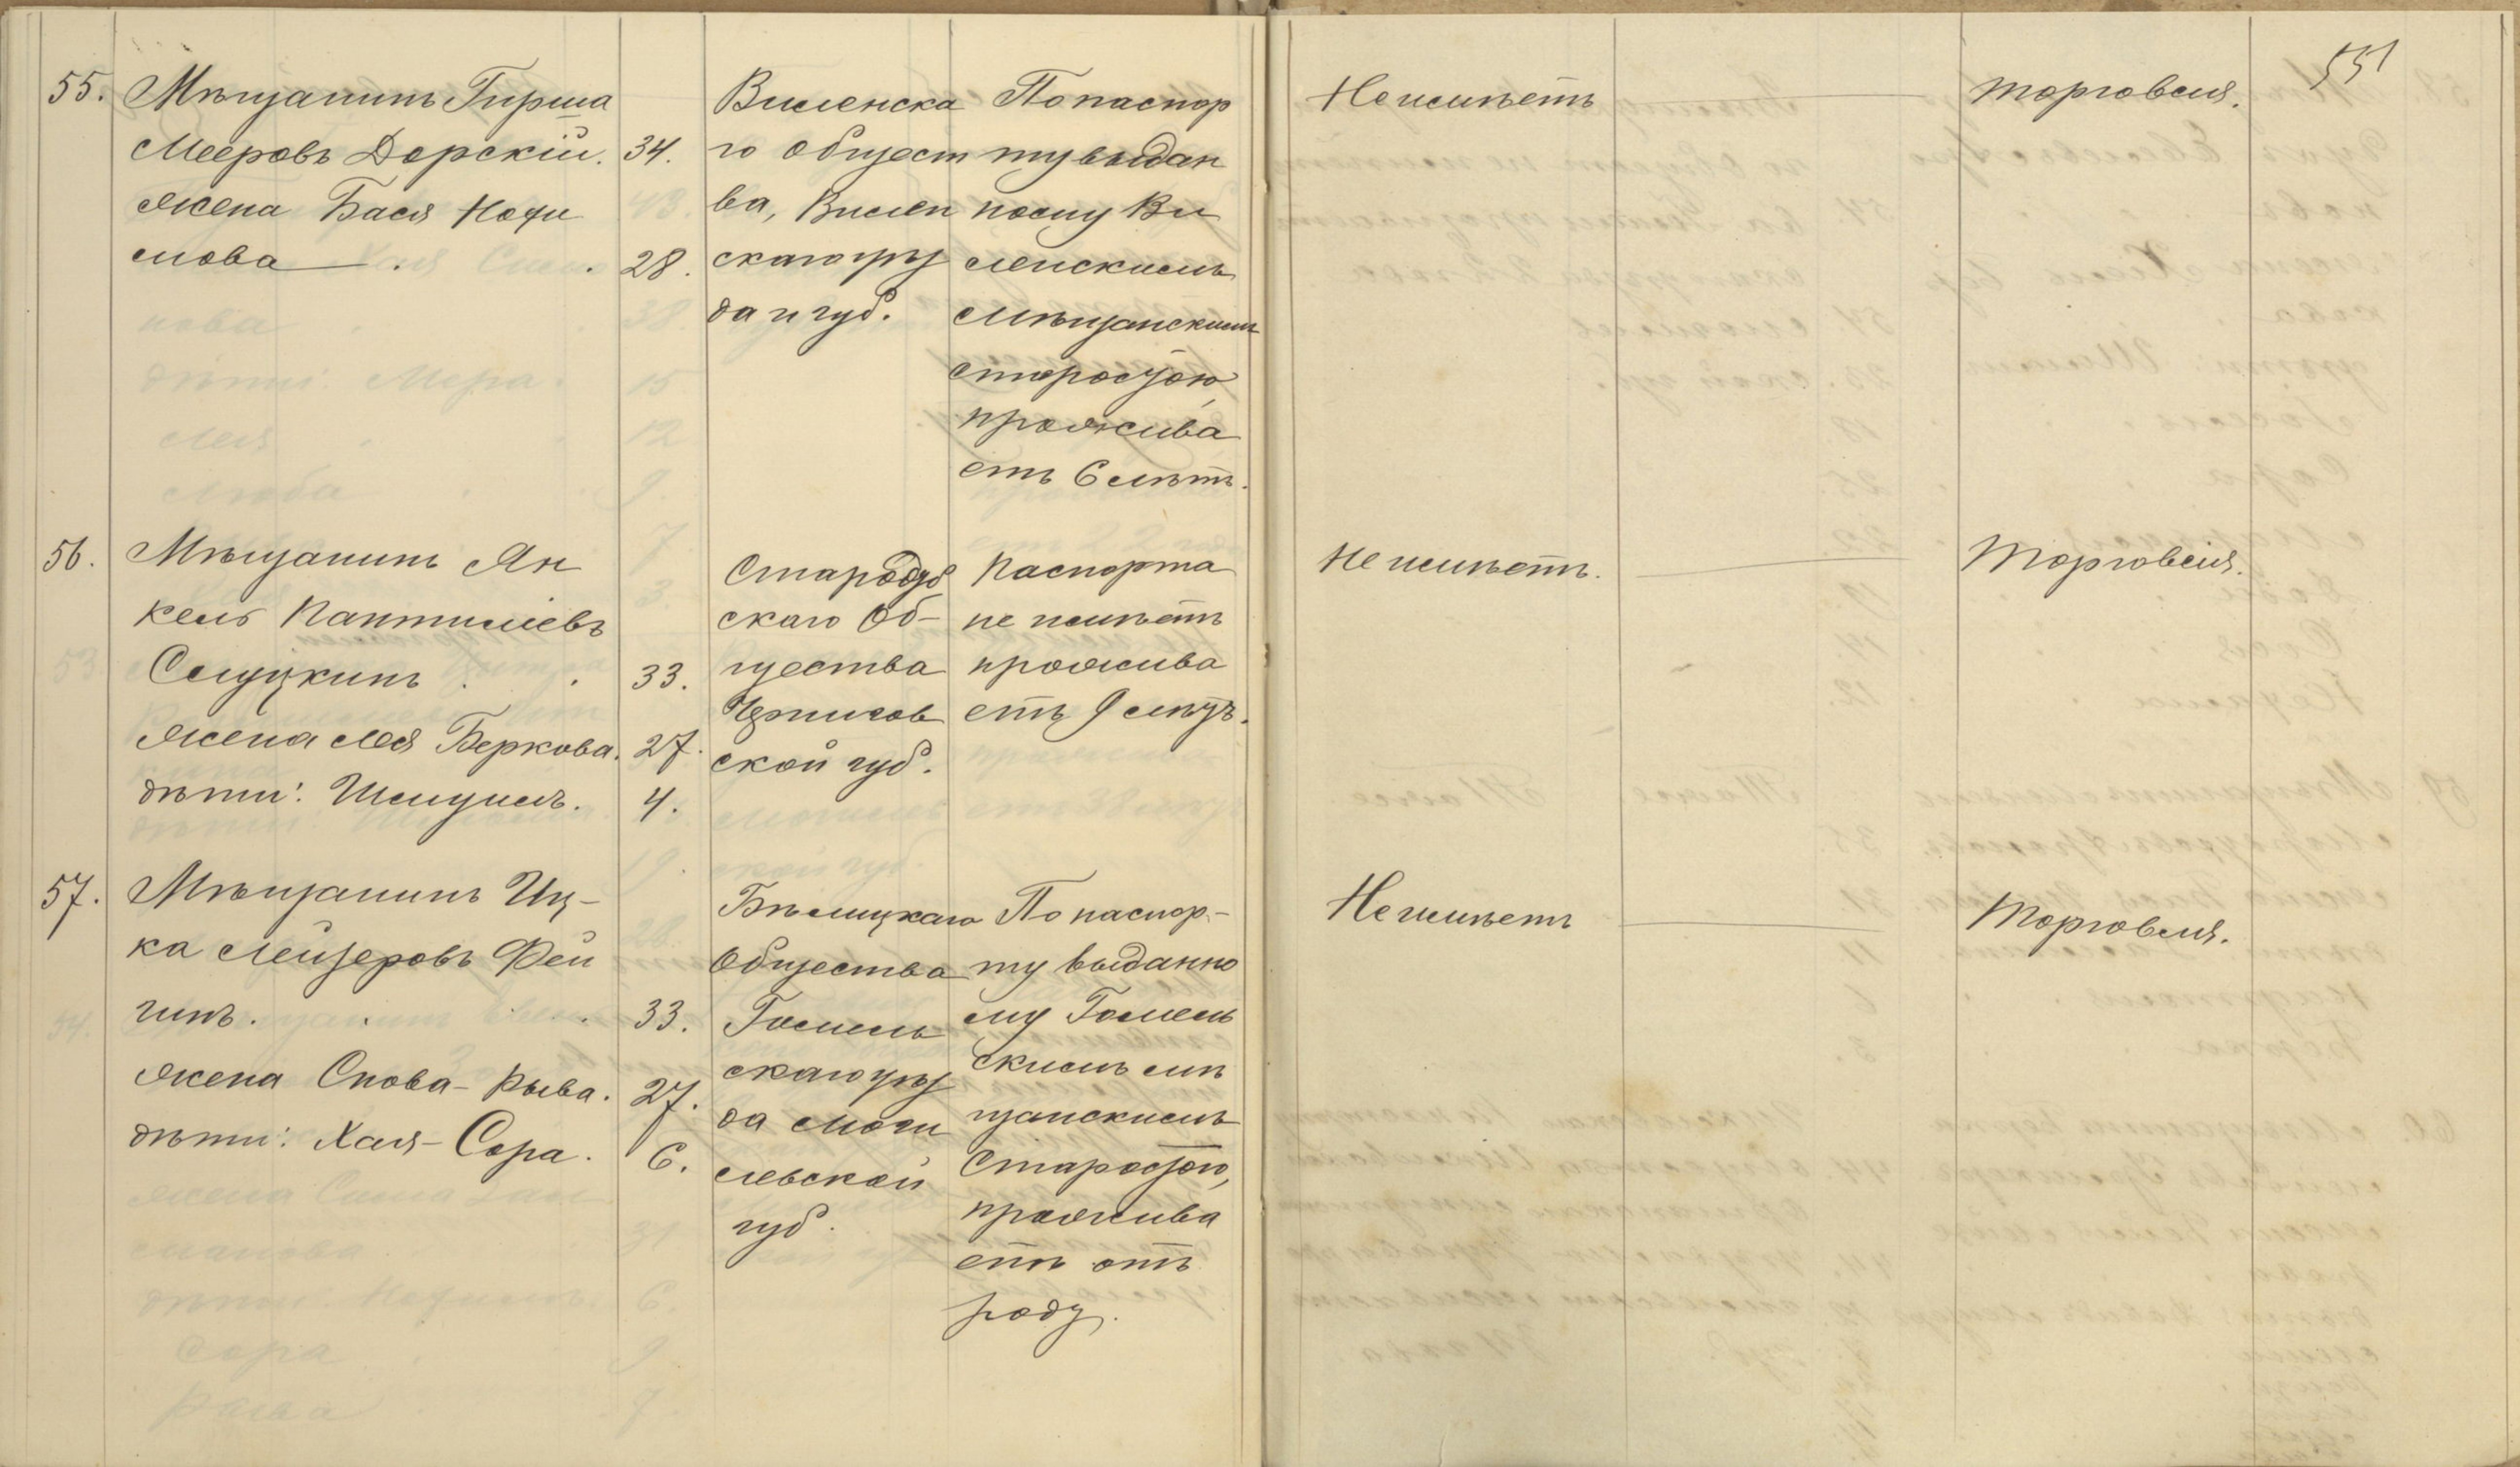 551
55.
Мѣщанинъ Гирша
Мееровъ Дорскій. 34.
жена Бася Нохи
мова 28.
Виленска
го общест
ва, Вилен
скаго уѣз
да и губ.
По паспор
ту выдан
ному Ви
ленскимъ
мѣщанскимъ
старостою,
прожива
етъ 6 лѣтъ.
Не имѣетъ
торговля.
56.
Мѣщанинъ Ян
кель Пантилievъ
Слуцкинъ 33.
жена Лея Беркова. 27.
дѣти: Шмуилъ. 4.
Стародуб
скаго Об-
щества
Чернигов
ской губ.
Паспорта
не имѣетъ
прожива
етъ 9 лѣтъ.
Не имѣетъ.
Торговля.
57.
Мѣщанинъ Иц-
ка Лейзеровъ Фей
гинъ. 33.
жена Слова-Рыва. 27.
дѣти: Хая-Сора. 6.
Бѣлицкаго
Общества
Гомель
скаго уѣз
да Моги
левской
губ.
По паспор-
ту выданно
му Гомель
скимъ мѣ
щанскимъ
Старостою,
прожива
етъ отъ
роду.
Не имѣетъ
Торговля.